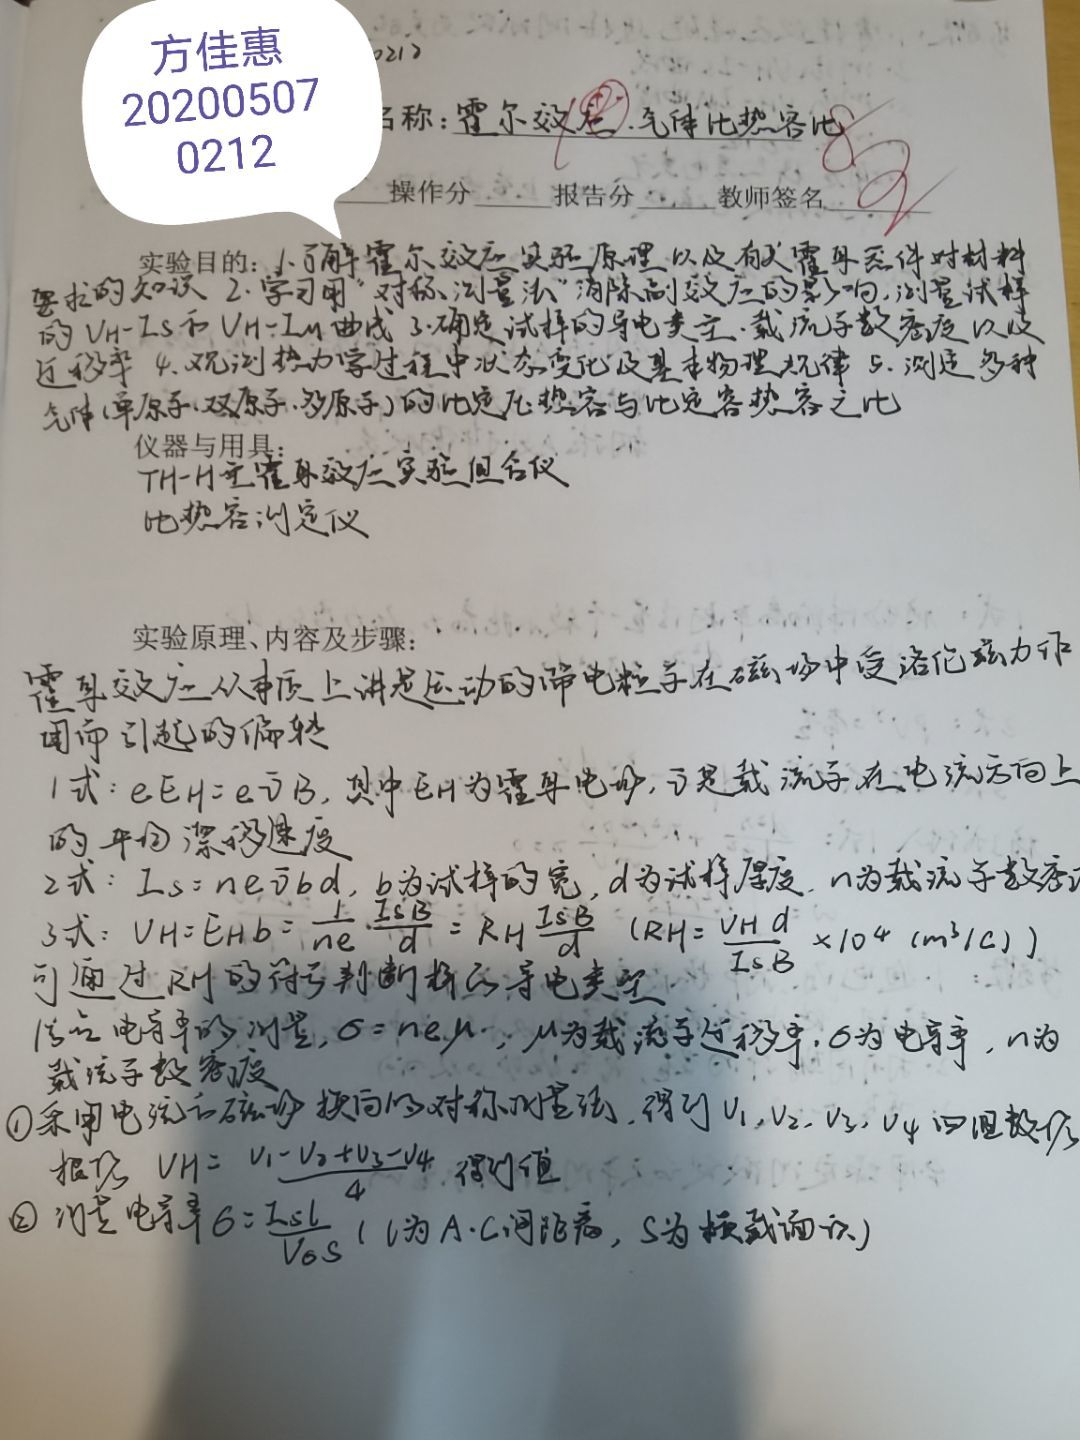 方佳惠
20200507
0212
名称：霍尔效应.气体比热容比
操作分 报告分 教师签名
实验目的：1.了解霍尔效应实验原理以及有关霍耳器件对材料
要求的知识 2.学习用"对称测量法"消除副效应的影响，测量试样
的VH-IS和VH-IM曲线 3.确定试样的导电类型.载流子数密度以及
迁移率 4.观测热力学过程中状态变化及基本物理规律 5.测定多种
气体(单原子.双原子.多原子)的比定压热容与比定容热容之比
仪器与用具：
TH-H型霍耳效应实验组合仪
比热容测定仪
实验原理、内容及步骤：
霍耳效应从本质上讲是运动的带电粒子在磁场中受洛伦兹力作
用而引起的偏转
1式：eEH=ev̄B，其中EH为霍耳电场，v̄是载流子在电流方向上
的平均漂移速度
2式：Is=nev̄bd，b为试样的宽，d为试样厚度，n为载流子数密度
3式：VH=EHb=1/ne·IsB/d=RH IsB/d (RH=VHd/IsB×10⁴(m³/C))
可通过RH的符号判断样品导电类型
结合电导率的测量，σ=neμ.，μ为载流子迁移率.σ为电导率，n为
载流子数密度
①采用电流和磁场换向的对称测量法，得到V1,V2,V3,V4四组数据
根据 VH=V1-V2+V3-V4/4 得到值
②测量电导率σ=Isl/VσS (l为A.C间距离，S为横截面积)
82